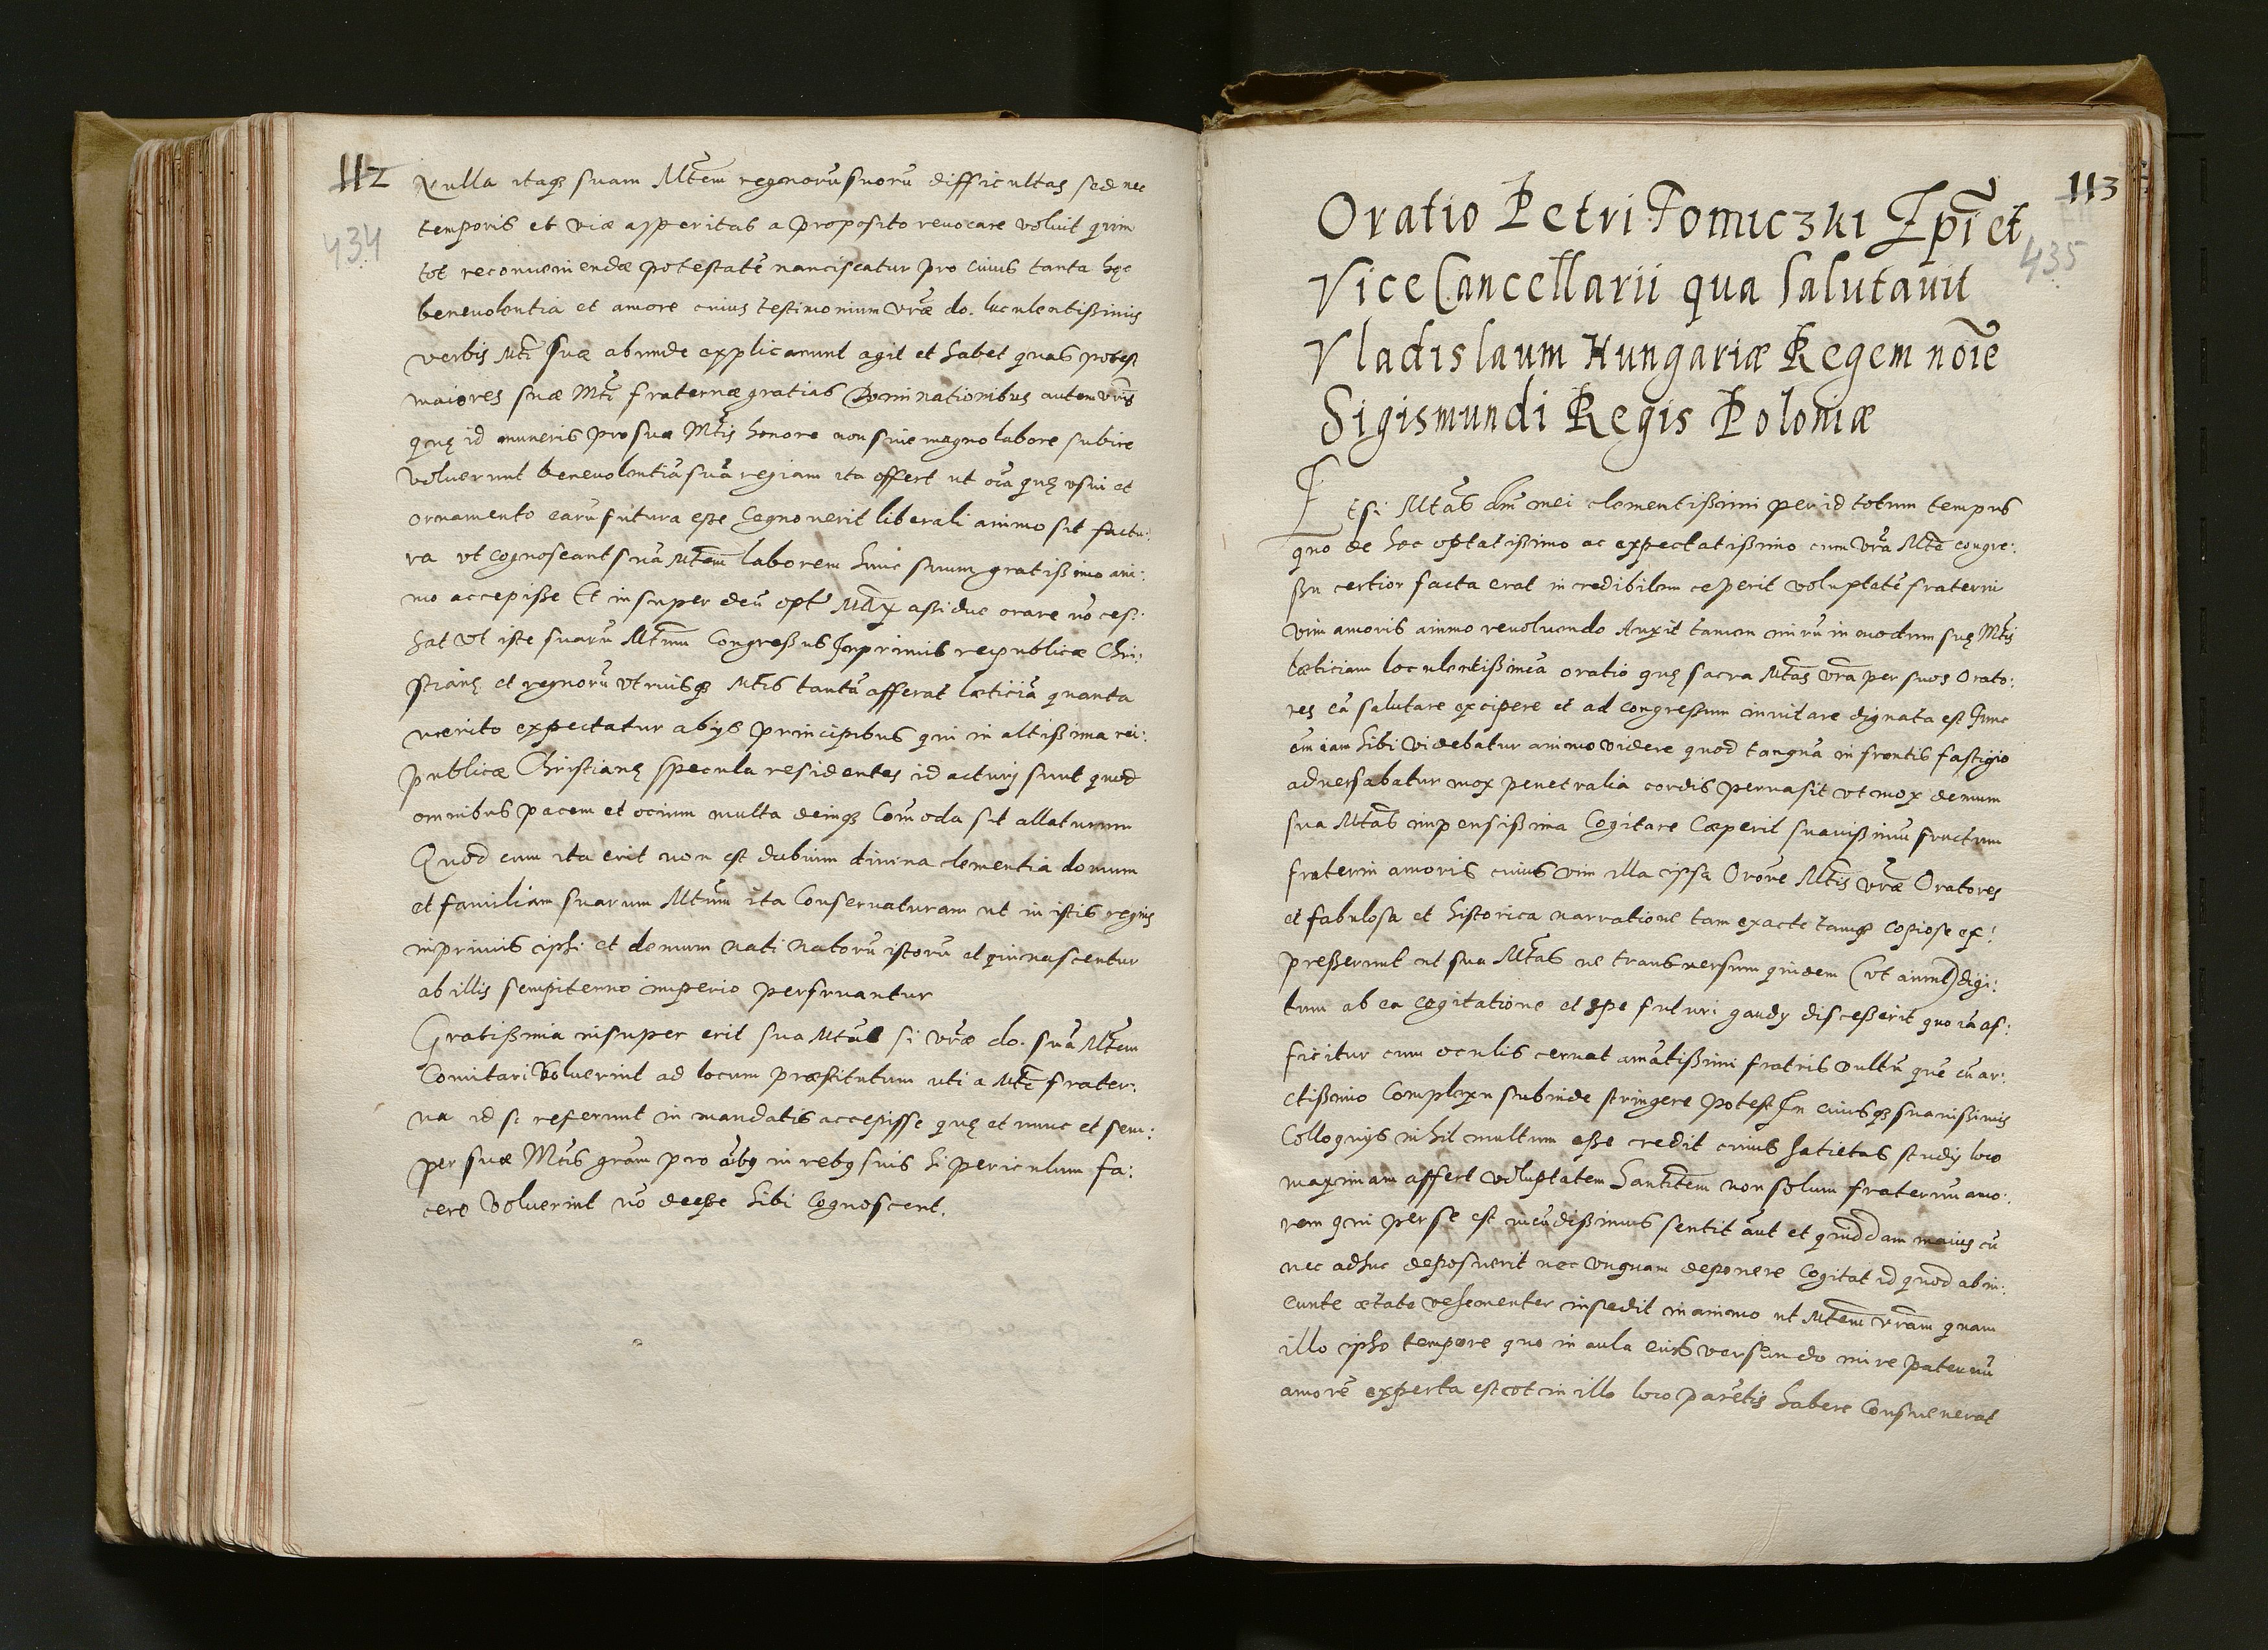 112
434
Nulla itaq; suam Mt̃em regnorũ suorũ difficultas sed nec
temporis et viæ asperitas a proposito reuocare voluit quim
tot reconueniendæ potestatẽ nanciscatur pro cuius tanta hęc
beneuolentia et amore cuius testimonium vr̃æ do. luculentißimis
verbis Mt̃i suæ abunde explicarunt agit et habet quas potest
maiores suæ Mt̃i fraternæ gratias Dominationibus autem vr̃is
quę id muneris pro suæ Mt̃is honore non sine magno labore subire
voluerunt beneuolentiã suã regiam ita offert ut oĩa quę vsui et
ornamento earũ futura eße Cognouerit liberali animo sit factu:
ra vt cognoscant suã Mt̃em laborem hunc suum gratißimo ani:
mo accepiße Et insuper deũ opt̃ MAx aßidue orare nõ ceß:
sat vt iste suarũ Mt̃um Congreßus Inprimis reipublicæ Chri:
stianę et regnorũ vtriusq; Mt̃is tantã afferat læticiã quanta
merito expectatur ab ijs principibus qui in altißima rei:
publicæ Christianę specula residentes id acturj sunt quod
omnibus pacem et ocium multa deniq; Com̃oda sit allaturum
Quod cum ita erit non est dubium diuina clementia domum
et familiam suarum Mt̃um ita Conseruaturam ut in istis regnis
inprimis ipsi et demum nati natorũ istorũ et qui nascentur
ab illis sempiterno imperio perfruantur
Gratißima insuper erit sua Mt̃as si vr̃æ do. suã Mt̃em
Comitari Voluerint ad locum præstitutum uti a Mt̃e frater:
na id se referunt in mandatis accepisse quę et nunc et sem:
per suæ Mt̃is gr̃am pro õibq in rebq suis si periculum fa:
cere Voluerint nõ deeße sibi Cognoscent.
113
435
Oratio Petri Tomiczki Ep̃i et
Vice Cancellarii qua Salutauit
Vladislaum Hungariæ Regem noĩe
Sigismundi Regis Poloniæ
Etsi Mt̃as dñi mei clementißimi per id totum tempus
quo de hoc optatißimo ac expectatißimo cum vr̃a Mt̃e congre:
ßu certior facta erat incredibilem ceperit voluptatẽ fraterni
vim amoris animo reuoluendo Auxit tamen mirũ in modum suę Mt̃is
læticiam loculentißimã oratio quę sacra Mt̃as vr̃a per suos Orato:
res eã salutare excipere et ad congreßum inuitare dignata est Tunc
em̃ iam sibi videbatur animo videre quod tanquã in frontis fastigio
aduersabatur mox penetralia cordis peruasit vt mox demum
sua Mt̃as impensißima Cogitare Cæperit suauißimũ fructum
fraterni amoris cuius vim illa ipsa Orõne Mt̃is vr̃æ Oratores
et fabulosa et historica narratione tam exacte tamq; copiose ex:
preßerunt ut sua Mt̃as ne transuersum quidem (vt aiunt) digi:
tum ab ea cogitatione et spe futuri gaudij disceßerit quo iã af:
ficitur cum oculis cernat amãtißimi fratris vultũ quẽ cũ ar:
ctißimo Complexu subinde stringere potest In cuiusq; suauißimis
Colloquijs nihil multum eße credit cuius satietas studij loco
maximam affert voluptatem Sanctitem non solum fraternũ amo:
rem qui per se est iucũdißimus sentit aũt et quiddam maius cũ
nec adhuc deposuerit nec vnquam deponere Cogitat id quod ab in:
eunte ætate vehementer insedit in animo ut Mt̃em vr̃am quam
illo ipso tempore quo in aula eius versando mire paternũ
amorẽ experta est cot in illo loco parẽtis habere Consueuerat